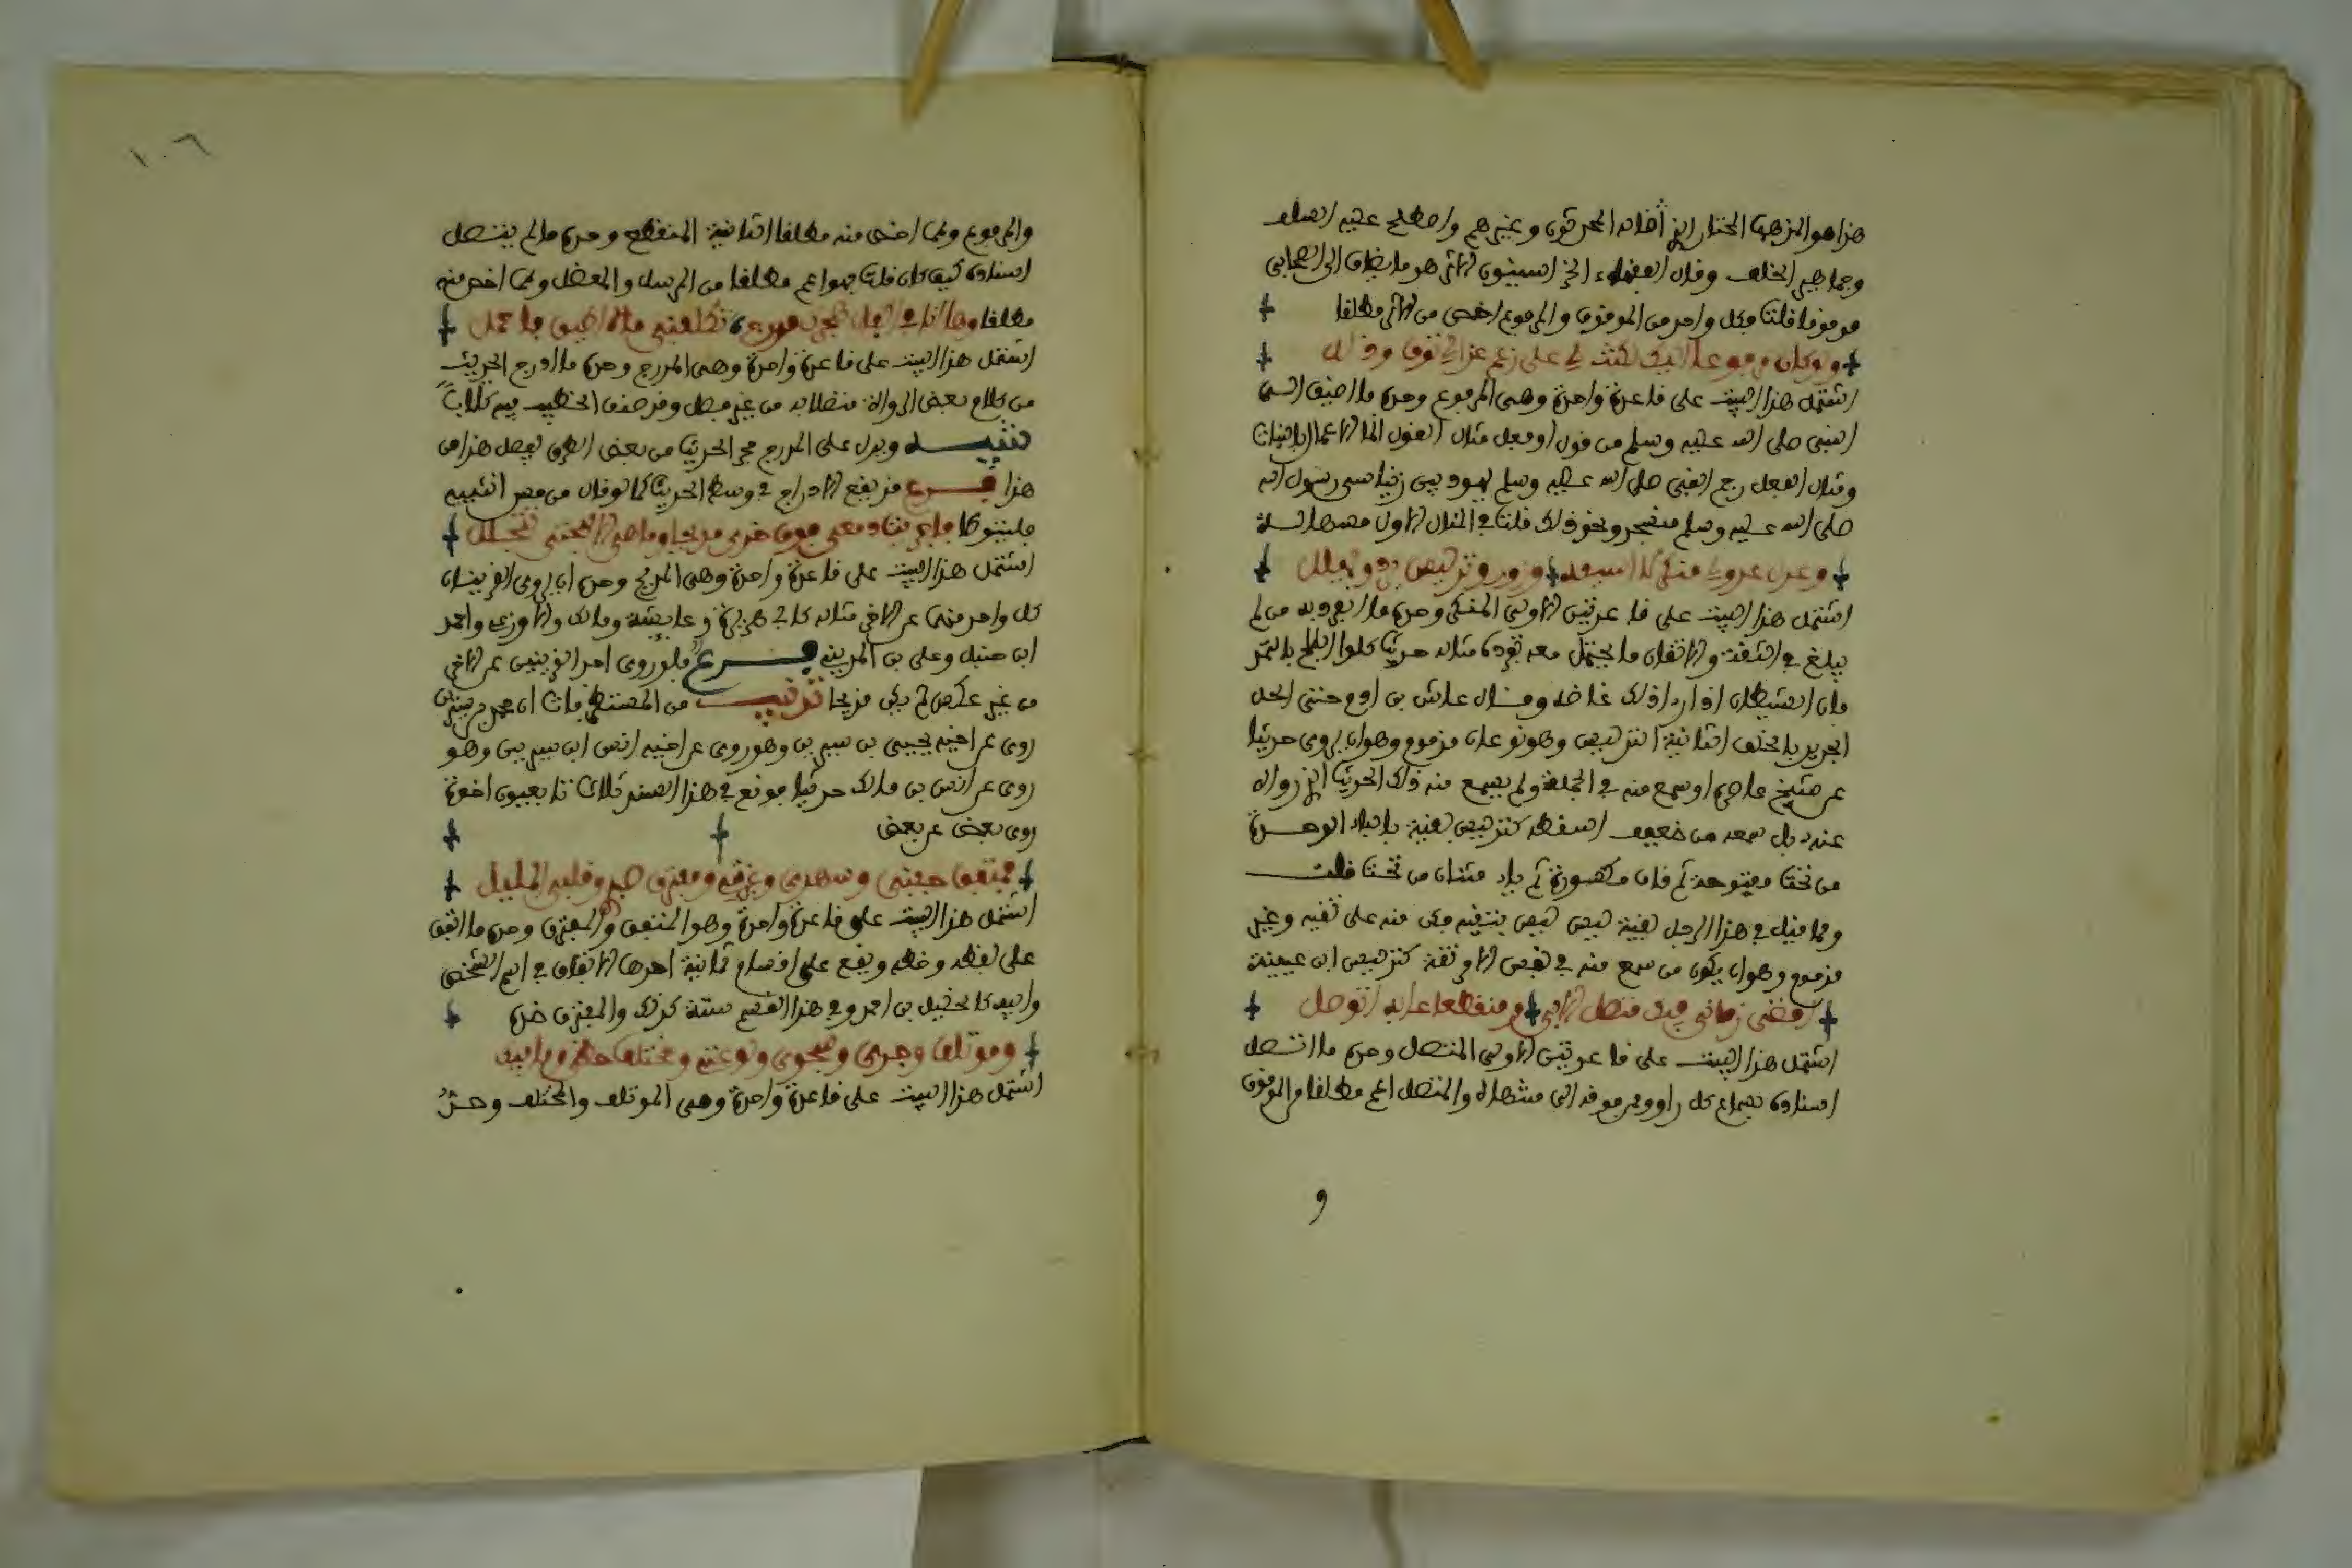 هذا هو المذهب المختار الذي قاله المحدثون وغيرهم واصطلح عليه السلف
وجماهير الخلف وقال الفقهاء الخراسانيون الاثر هو ما يضاف الى الصحابي
موقوفا قلت فكل واحد من الموقوف والمرفوع اخص من الاثر مطلقا
ولو كان مرفوعا اليك لكنت لي على رغم عذالي ترق وتعدل
اشتمل هذا البيت على قاعدة واحدة وهي المرفوع وحده ما اضيف الى
النبي صلى الله عليه وسلم من قول او فعل مثال القول انما الاعمال بالنيات
ومثال الفعل رجم النبي صلى الله عليه وسلم يهوديين زنيا سهى رسول الله
صلى الله عليه وسلم فسجد ونحو ذلك قلت في المثال الاول
وعذل عذولي منكر لا اسيغه وزور وتدليس يرد ويهمل
اشتمل هذا البيت على قاعدتين الاولى المنكر وحده ما انفرد به من لم
يبلغ في الثقة والاتقان ما يحتمل معه تفرده مثاله حديث كلوا البلح بالتمر
فان الشيطان اذا راى ذلك غاضه وقال عاش بن ادم حتى اكل
الجديد بالخلق الثانية التدليس وهو نوعان مذموم وهو ان يروي حديثا
عن شيخ عاصره او سمع منه في الجملة ولم يسمع منه ذلك الحديث الذي رواه
عنه بل سمعه من ضعيف اسقطه كتدليس بقية بالباء الموحدة
من تحت مفتوحة ثم قاف مكسورة ثم ياء مثناة من تحت قلت
ومما قيل في هذا الرجل بقية ليس ليس بنقية فكن منه على تقية وغير
مذموم وهو ان يكون من سمع منه في نفس الامر ثقة كتدليس ابن عيينة
اقضي زماني فيك متصل الاسى ومنقطعا عما به اتوصل
اشتمل هذا البيت على قاعدتين الاولى المتصل وحده ما اتصل
اسناده بسماع كل راو ممن فوقه الى منتهاه والمتصل اعم مطلقا من الموقوف
و
١٠٦
والمرفوع ومما اخص منه مطلقا الثانية المنقطع وحده ما لم يتصل
اسناده كيف كان قلت فهو اعم مطلقا من المرسل والمعضل ومما اخص منه
مطلقا وها انا في اكفان هجرك مدرج تكلفني ما لا اطيق فاحمل
اشتمل هذا البيت على قاعدة واحدة وهي المدرج وحده ما ادرج الحديث
من كلام بعض الرواة متصلا به من غير فصل وقد صنف الخطيب فيه كتابا
تنبيه ويدل على المدرج مجي الحديث من بعض الطرق بفصل هذا من
هذا فرع قد يقع الادراج في وسط الحديث كما لو قال من مس انثييه
فليتوضا فاجريت دمعي فوق خدي مدبجا وما هي الا مهجتي تتحلل
اشتمل هذا البيت على قاعدة واحدة وهي المدبج وحده ان يروي القرينان
كل واحد منهما عن الاخر مثاله كابي هريرة وعايشة ومالك والاوزعي واحمد
ابن حنبل وعلي بن المديني فرع فلو روى احد القرينين عن الاخر
من غير عكس لم يكن مدبجا تذنيب من المستطرفات ان محمد بن سيرين
روى عن اخيه يحيى بن سيرين وهو روى عن اخيه انس ابن سيرين وهو
روى عن انس بن مالك حديثا فوقع في هذا السند ثلاث تابعيون اخوة
روى بعض عن بعض
فمتفق جفني وسهدي وعبرتي ومفترق صبري وقلبي المبلبل
اشتمل هذا البيت على قاعدة واحدة وهو المتفق والمفترق وحده ما اتفق
على لفظه وخطه ويقع على اقسام ثمانية احدها الاتفاق في اسم الشخص
وابيه كالخليل بن احمد وفي هذا القسم ستة كذلك والمفترق ضده
وموتلف وجدي وشجوي ولوعتي ومختلف حظي وما فيك
اشتمل هذا البيت على قاعدة واحدة وهي الموتلف والمختلف وحده